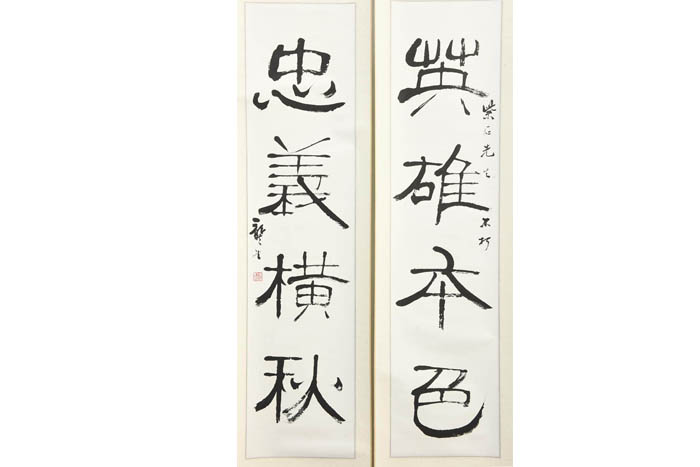 英雄本色
紫石先生 不朽
忠義橫秋